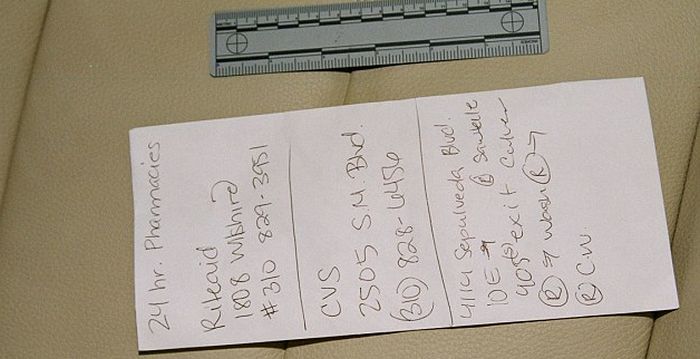 24 hr. Pharmacies
Riteaid
1808 Wilshire
#310 829-3951
CVS
2505 S.M. Blvd.
(310) 828-6456
4114 Sepulveda Blvd.
10E → @ Sawtelle
405(S) exit Culver
(R) → Wash (R) →
(R) C.W.